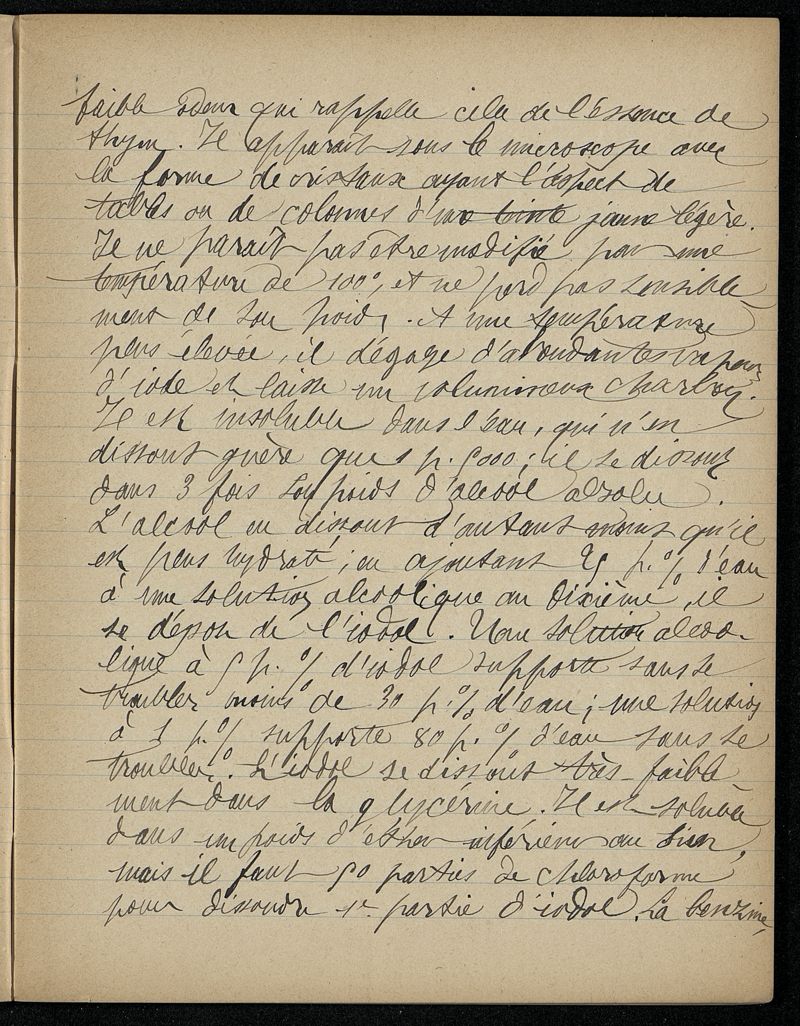 faible odeur qui rappelle cela de l'essence de
thym. Il apparaît sous le microscope avec
la forme de cristaux ayant l'aspect de
tables ou de colonnes d'une teinte jaune légère.
Il ne paraît pas être modifié par une
température de 100°, et ne perd pas sensible
ment de son poids. A une température
plus élevée, il dégage d'abondantes vapeurs
d'iode et laisse un volumineux charbon.
Il est insoluble dans l'eau, qui n'en
dissout guère que 1 p. 5000; il se dissout
dans 3 fois son poids d'alcool absolu.
L'alcool en dissout d'autant moins qu'il
est plus hydraté; en ajoutant 25 p. % d'eau
à une solution alcoolique au dixième, il
se dépose de l'iodol. Une solution alcoo-
lique à 5 p. % d'iodol supporte sans se
troubler moins de 30 p. % d'eau; une solution
à 1 p. % supporte 80 p. % d'eau sans se
troubler. L'iodol se dissout très-faible
ment dans la glycérine. Il est soluble
dans un poids d'éther inférieur au sien,
mais il faut 50 parties de chloroforme
pour dissoudre 1e partie d'iodol. La benzine,